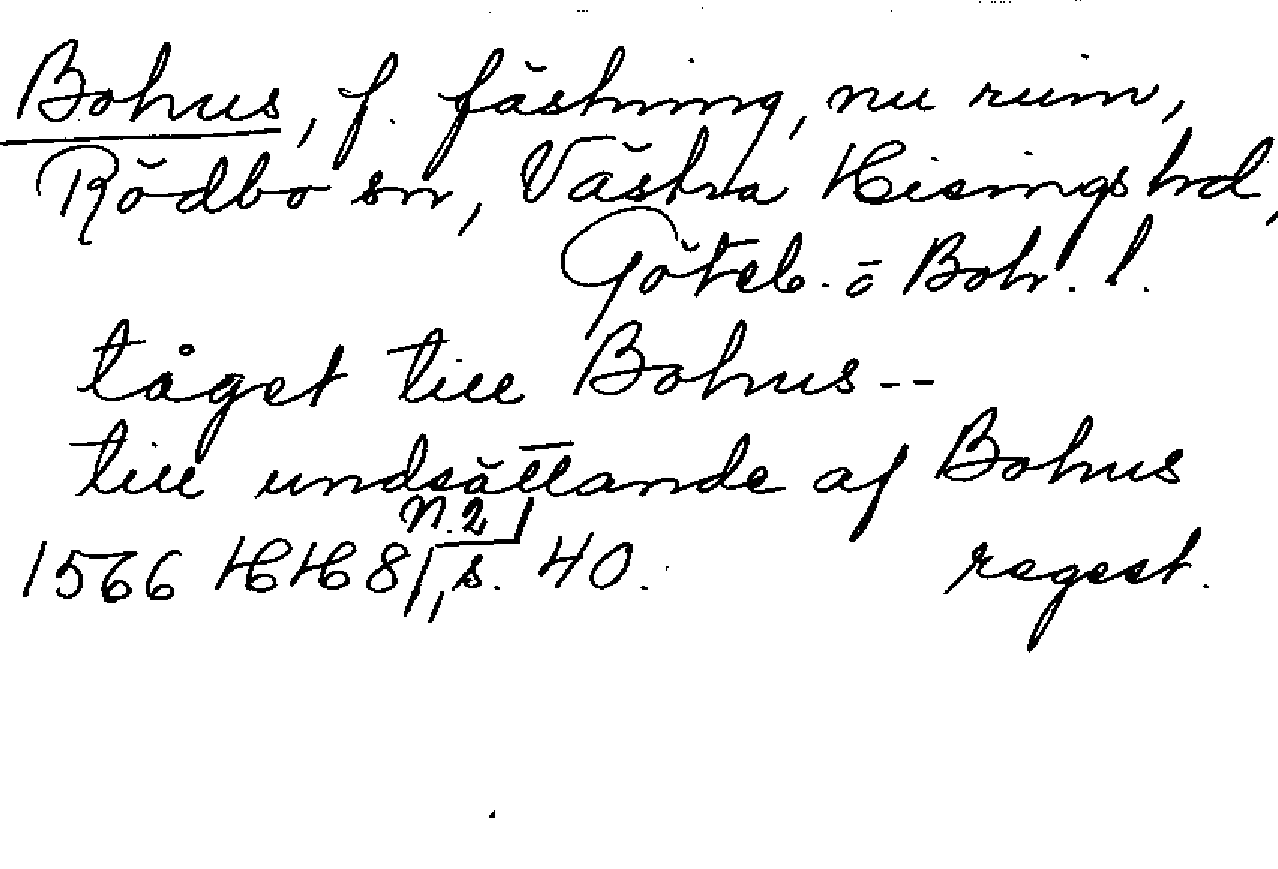 Bohus, f. fästning, nu ruin,
Rödbo sn, Västra Hisings hd,
Göteb. o Boh. l.
tåget till Bohus--
till undsättande af Bohus
n. 2
1566 HH 8, s. 40. regest.